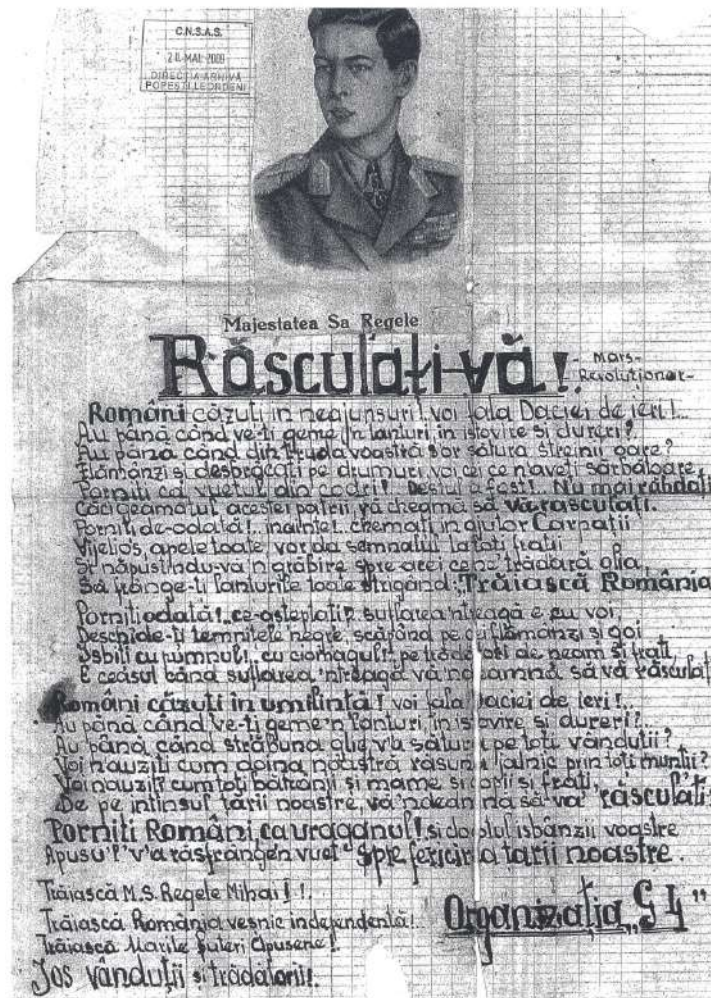 C.N.S.A.S.
20. MAI. 2009
DIRECȚIA ARHIVĂ
POPEȘTI LEORDENI
Majestatea Sa Regele
Răsculați-vă! - Marș-
Revoluționar-
Români căzuți in neajunsuri! voi fala Daciei de ieri!...
Au până când ve-ți geme in lanțuri, in istovire si dureri?
Au până când din truda voastră s'or sătura streinii oare?
Flămânzi si desbrăcați pe drumuri, voi cei ce n'aveți sărbătoare,
Porniți ca vuetul din codri! Destul a fost!.. Nu mai răbdați
Căci geamătul acestei patrii vă cheamă să vă răsculați.
Porniți de-odată!.. inainte!.. chemați in ajutor Carpații
Vijelios, apele toate vor da semnalul la toti frații
Si năpustindu-vă 'n grăbire spre acei ce ne trădară glia,
Să frânge-ți lanțurile toate strigând: "Trăiască România
Porniți odată!.. ce-așteptați? suflarea 'ntreagă e cu voi,
Deschide-ți temnițele negre, scăpând pe cei flămânzi și goi
Isbiți cu pumnul!.. cu ciomagul!.. pe trădătorii de neam si frați,
E ceasul când suflarea 'ntreagă vă 'ndeamnă să vă răsculați
Români căzuți in umilință! voi fala Daciei de ieri!..
Au până când ve-ți geme 'n lanțuri in istovire si dureri?..
Au până când străbuna glie v'a sătura pe toti vânduții?
Voi n'auziți cum doina noastră răsună jalnic prin toti munții?
Voi n'auziți cum toți bătrânii si mame si copii si frați,
De pe intinsul țării noastre, vă 'ndeamnă să vă "răsculați"
Porniți Români ca uraganul! si dealul isbânzii voastre
Apusu'l v'a răsfrânge 'n vuet spre fericirea tarii noastre.
Trăiască M.S. Regele Mihai I!.
Trăiască România veșnic independentă!.
Trăiască Marile Puteri Apusene!.
Jos vânduții si trădătorii!.
Organizația "G 4"